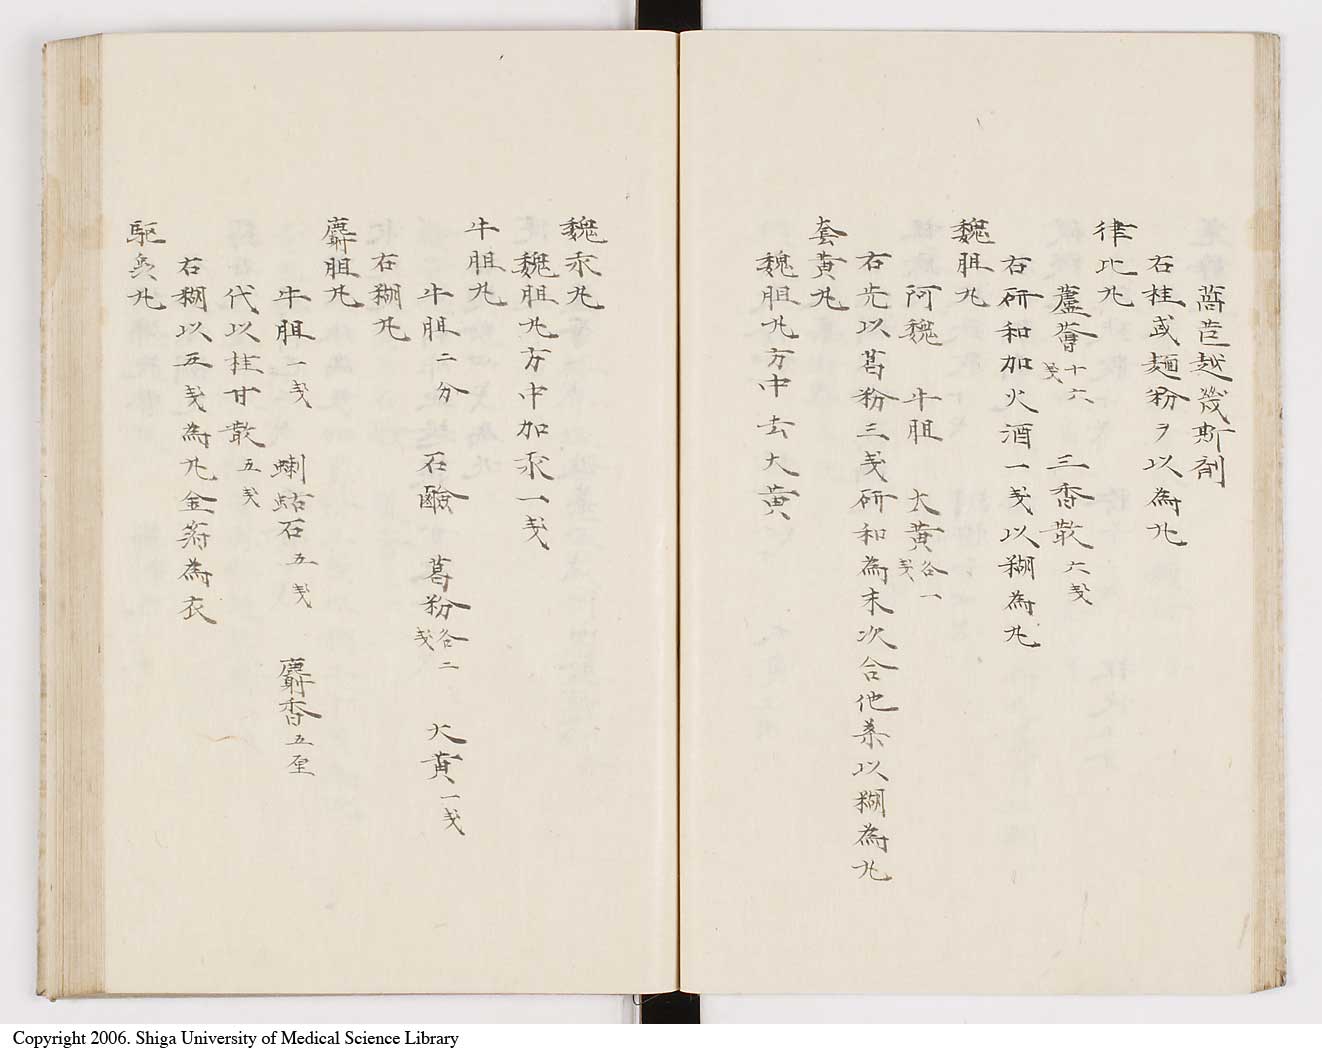 莨菪越幾斯剤
右桂或麺粉ヲ以為丸
律比丸
蘆薈十六戔 三香散六戔
右研和加火酒一戔以糊為丸
魏胆丸
阿魏 牛胆 大黄各一戔
右先以葛粉三戔研和為末次合他薬以糊為丸
套黄丸
魏胆丸方中去大黄
魏汞丸
魏胆丸方中加汞一戔
牛胆丸
牛胆二分 石鹸 葛粉各二戔 大黄一戔
右糊丸
麝胆丸
牛胆一戔 蝲蛄石五戔 麝香五厘
代以桂甘散五戔
右糊以五戔為丸金箔為衣
駆丸
Copyright 2006. Shiga University of Medical Science Library